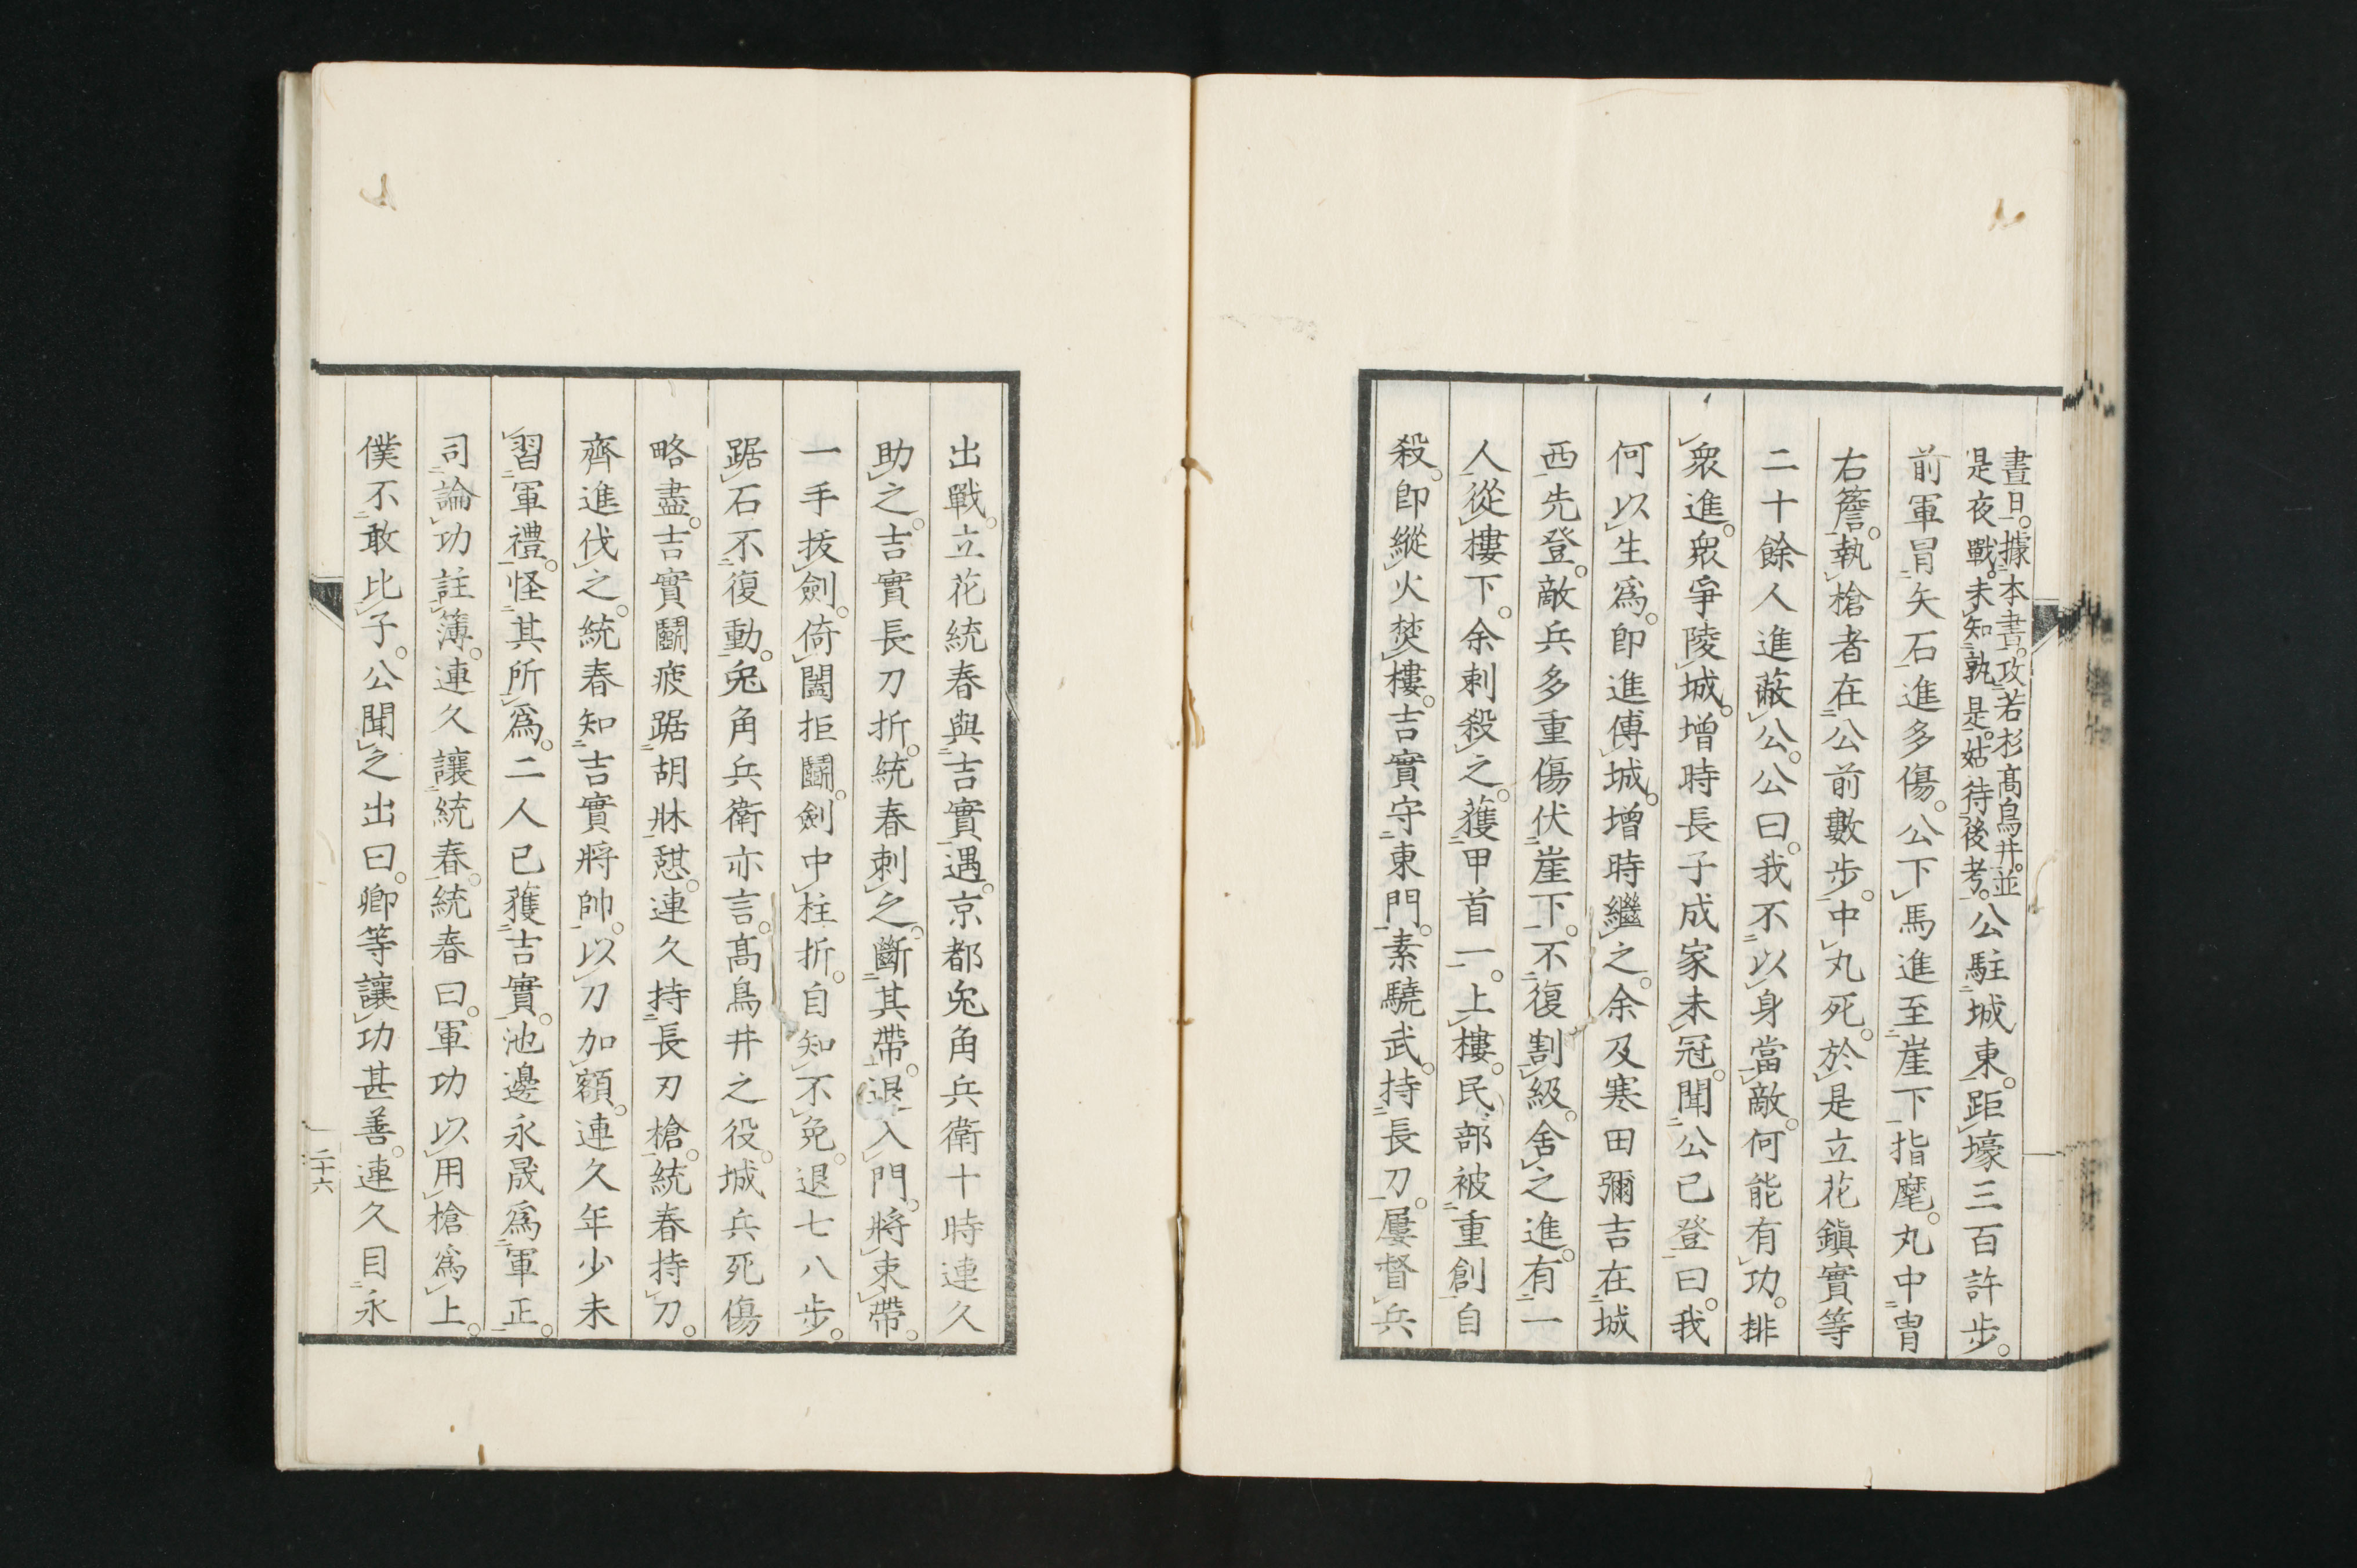 晝日。據本書。攻若杉高鳥井。並
是夜戰。未知孰是。姑待後考。公駐城東。距壕三百許步。
前軍冒矢石進多傷。公下馬進至崖下指麾。丸中冑
右簷。執槍者在公前數步。中丸死。於是立花鎭實等
二十餘人進蔽公。公曰。我不以身當敵。何能有功。排
衆進。衆爭陵城。增時長子成家未冠。聞公已登曰。我
何以生爲。卽進傅城。增時繼之。余及寒田彌吉在城
西先登。敵兵多重傷伏崖下。不復割級。舍之進。有一
人從樓下。余刺殺之。獲甲首一。上樓。民部被重創自
殺。卽縱火焚樓。吉實守東門。素驍武。持長刀。屢督兵
出戰。立花統春與吉實遇。京都兎角兵衛十時連久
助之。吉實長刀折。統春刺之。斷其帶。退入門。將束帶。
一手拔劍。倚闔拒鬭。劍中柱折。自知不免。退七八步。
踞石不復動。兎角兵衛亦言。高鳥井之役。城兵死傷
略盡。吉實鬭疲踞胡牀憇。連久持長刃槍。統春持刀。
齊進伐之。統春知吉實將帥。以刀加額。連久年少未
習軍禮。怪其所爲。二人已獲吉實。池邊永晟爲軍正。
司論功註簿。連久讓統春。統春曰。軍功以用槍爲上。
僕不敢比子。公聞之出曰。卿等讓功甚善。連久目永
二十六